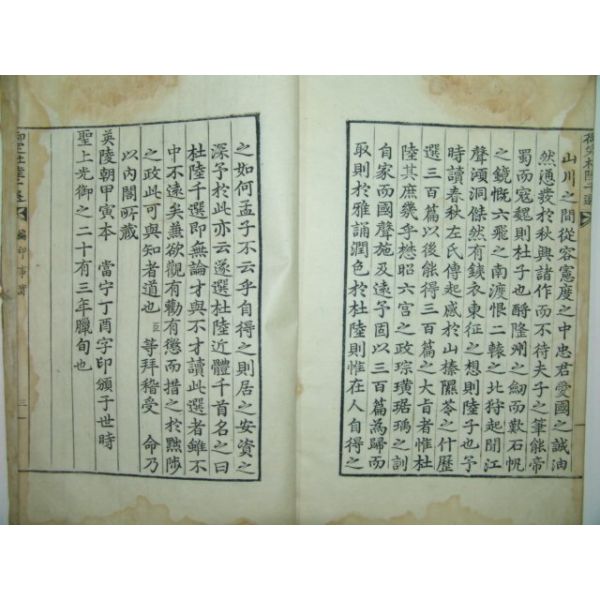 山川之間從容憲度之中忠君愛國之誠油
然通發於秋興諸作而不待夫子之筆能帝
蜀而寇魏則杜子也酹隆州之
之鏡慨六飛之南渡恨二轅之北狩起聞江
聲澒洞傑然有鐵衣東征之想則陸子也予
時讀春秋左氏傳起感於山榛隰苓之什歷
選三百篇以後能得三百篇之大旨者惟杜
陸其庶幾乎懋昭六宮之政琮璜琚瑀之訓
自家而國聲施及遠予固以三百篇為歸而
取則於雅誦潤色於杜陸則惟在人自得之
之如何孟子不云乎自得之則居之安資之
深予於此亦云遂選杜陸近體千首名之曰
杜陸千選即無論才與不才讀此選者雖不
中不遠矣蕉欲觀有勸有懲而措之於黜陟
之政此可與知者道也 臣等拜稽受 命乃
以內閣所藏
英陵朝甲寅本 當宁丁酉字印頒于世時
聖上光御之二十有三年臘旬也
編印事實
三